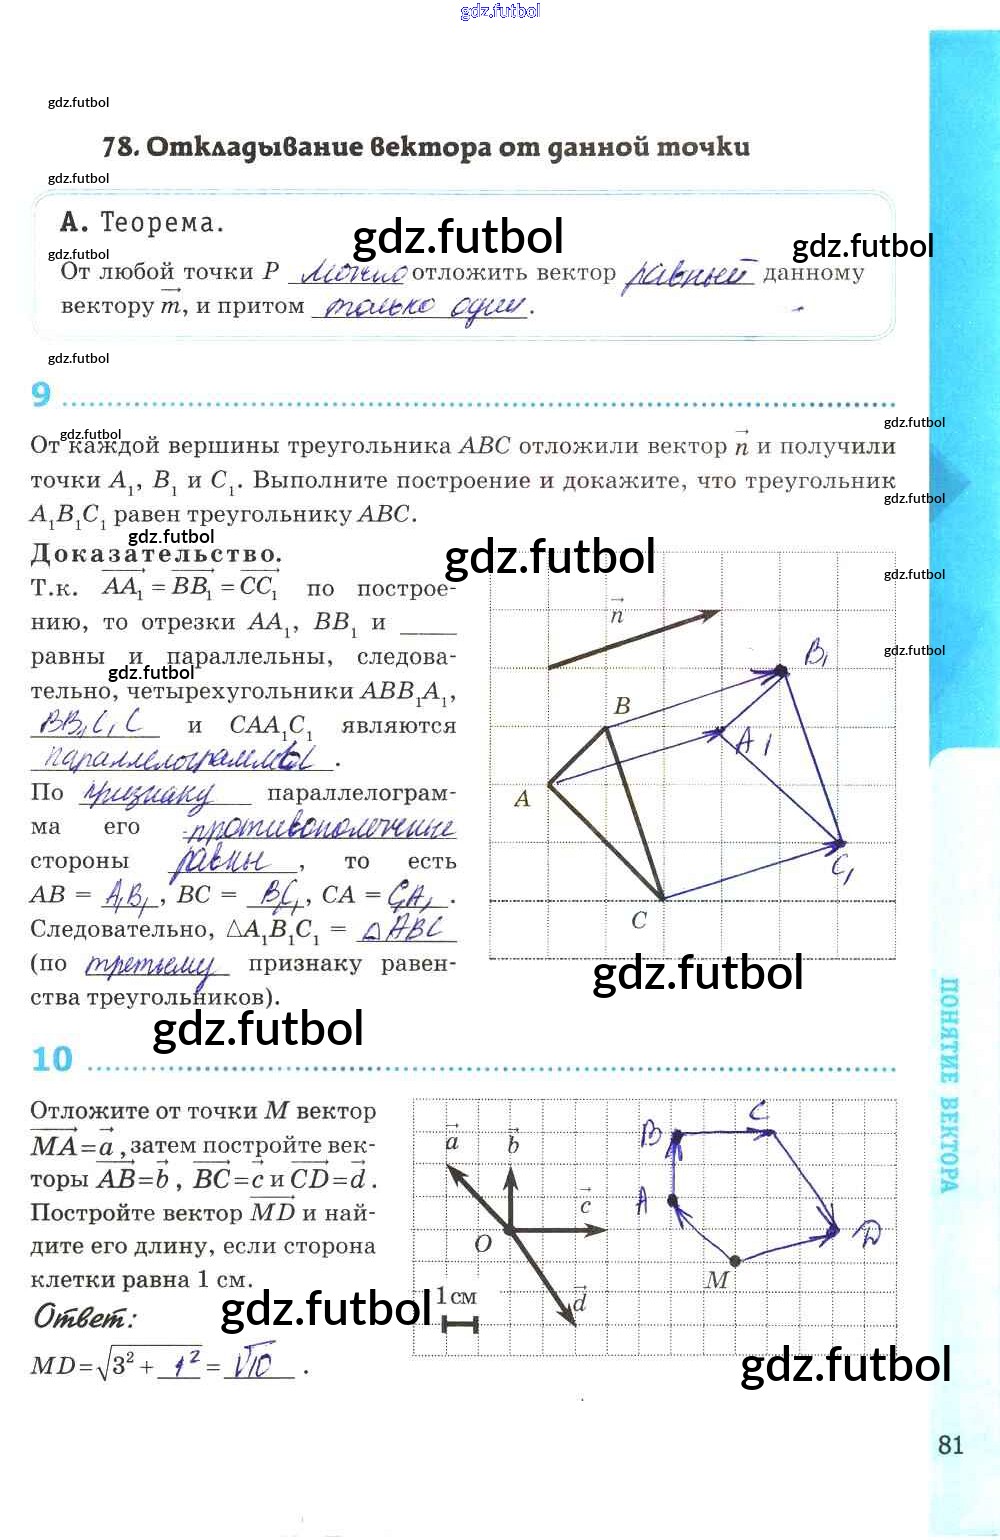 gdz.futbol
gdz.futbol
78. Откладывание вектора от данной точки
gdz.futbol
А. Теорема.
gdz.futbol
gdz.futbol
gdz.futbol
От любой точки P можно отложить вектор равный данному
вектору m, и притом только один.
gdz.futbol
9
gdz.futbol
gdz.futbol
От каждой вершины треугольника ABC отложили вектор n и получили
точки A₁, B₁ и C₁. Выполните построение и докажите, что треугольник
gdz.futbol
A₁B₁C₁ равен треугольнику ABC.
gdz.futbol
Доказательство.
gdz.futbol
gdz.futbol
Т.к. AA₁ = BB₁ = CC₁ по построе-
нию, то отрезки AA₁, BB₁ и ____
равны и параллельны, следова-
gdz.futbol
gdz.futbol
тельно, четырехугольники ABB₁A₁,
BB₁C₁C и CAA₁C₁ являются
параллелограммы.
По признаку параллелограм-
ма его противополочные
стороны равны, то есть
AB = A₁B₁, BC = B₁C₁, CA = C₁A₁.
Следовательно, △A₁B₁C₁ = △ABC
(по третьему признаку равен-
ства треугольников).
n
B₁
B
A₁
A
C₁
C
gdz.futbol
gdz.futbol
ПОНЯТИЕ ВЕКТОРА
10
Отложите от точки M вектор
MA=a, затем постройте век-
торы AB=b, BC=c и CD=d.
Постройте вектор MD и най-
дите его длину, если сторона
клетки равна 1 см.
gdz.futbol
Ответ:
MD=√3² + 1² = √10.
a
b
B
C
c
A
O
D
M
1 см
d
gdz.futbol
81